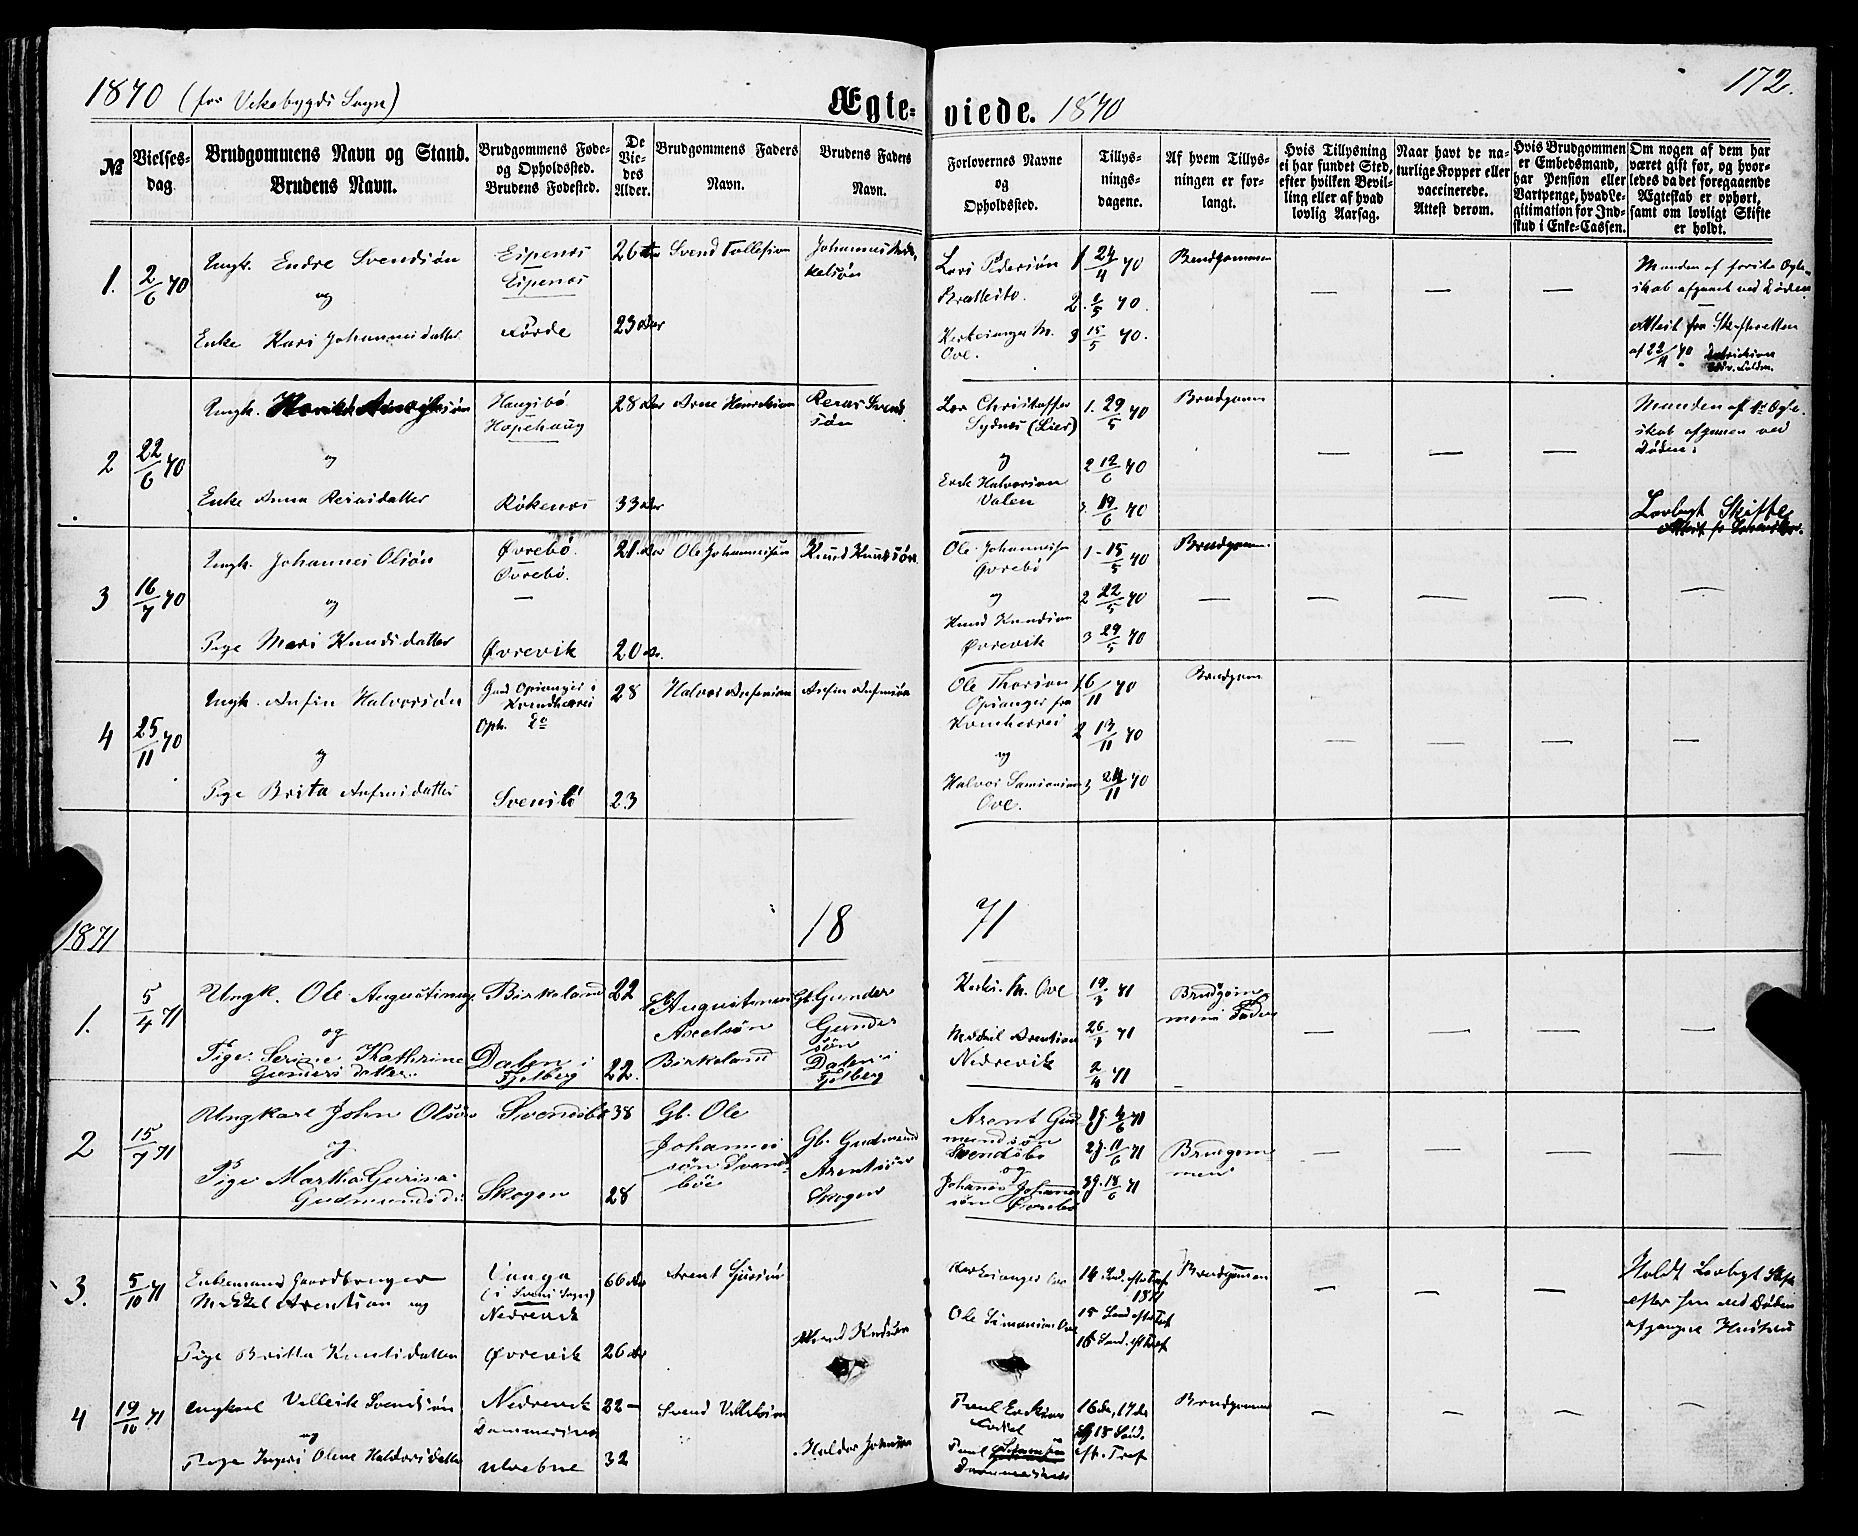 1870 (for Vikebygds Sogn)
Ægte-
viede. 1870
172.
№
Vielses-
dag.
Brudgommens Navn og Stand.
Brudens Navn.
Brudgommens Føde-
og Opholdssted.
Brudens Fødested.
De
Vie-
des
Alder.
Brudgommens Faders
Navn.
Brudens Faders
Navn.
Forlovernes Navne
og
Opholdssted.
Tillys-
nings-
dagene.
Af hvem Tillys-
ningen er for-
langt.
Hvis Tillysning
ei har fundet Sted,
efter hvilken Bevil-
ling eller af hvad
lovlig Aarsag.
Naar havt de na-
turlige Kopper eller
vaccinerede.
Attest derom.
Hvis Brudgommen
er Embedsmand,
har Pension eller
Vartpenge, hvad Le-
gitimation for Ind-
skud i Enke-Cassen.
Om nogen af dem har
været gift før, og hvor-
ledes da det foregaaende
Ægteskab er ophørt,
samt om lovligt Skifte
er holdt.
1. 2/6 70
Ungk. Endre Svendsøn
og
Enke Kari Johannesdatter
Eipenes
Eipenes
Førde
26
23
Svend Tollefsøn
Johannes
kelsøn
Lars Pedersøn
1 24/4 70
2. 2/5 70.
3 15/5 70.
Ove.
Brudgommen
— — —
Manden af første Ægte-
skab afgaaet ved Døden
Attest fra Skifteretten
af 22/4 70
2 22/6 70
Ungk.
og
Enke Anna Reiersdatter
Haugsbø
Hopehaug
Røkenes
28
33
Arne Henriksøn
Svend
søn
Christoffer
Sydnes (Lier)
og
Halvorsøn
Valen
1. 29/5 70
2 12/6 70
3. 19/6 70
Brudgom
— — —
Manden af 1ste Ægte-
skab afgaaen ved
Døden.
Lovligt Skifte
3 16/7 70
Ungk. Johannes Olsøn
og
Pige Mari Knudsdatter
Øvrebø.
Øvrebø.
—
Øvrevik
21
20
Ole Johannessøn
Knud Knudsøn
Ole Johannessøn
Øvrebø
og
Knud Knudsøn
Øvrevik
1 - 15/5 70
2 22/5 70
3 29/5 70
Brudgommen
— — — — —
4 25/11 70
Ungk. Anfin Halvorsøn
og
Pige Brita Anfinsdatter
Opsanger i
Kvindherred
Oph. do
Svensbø
28
23
Halvor Anfinsøn
Anfin Anfinsøn
Ole Thorsøn
Opsanger fra
Kvindherred
og
Halvor Samsonsøn
Ove.
1 6/11 70
2 13/11 70
3 20/11 70
Brudgom
— — — —
1871
18 71
1. 5/4 71
Ungk. Ole Augustinus
og
Pige. Serine Kathrine
Gundersdatter.
Birkeland
Dalen i
Fjelberg
22
22.
Augustinus
Axelsøn
Birkeland
Gb. Gunder
Gunder
søn
Dalen i
Fjelberg
Kirkes. M. Ove
Mikkel Arentsøn
Nedrevik
19/3 71
26/3 71
2/4 71
Brudgom-
mens Fader
— — — —
2 15/7 71
Ungkarl John Olsøn
og
Pige Martha Gurina
Gudmundsd.
Svendsbø
Skogen
38
28
Gb. Ole
Johannes
søn Svends-
bøe
Gb. Gudmund
Arentsøn
Skogen
Arent Gud
mundsøn
Svendsbø
og
Johannes Johannes
søn Øvrebø
1g. 4/6 71
2g. 11/6 71
3g. 18/6 71
Brudgom
men
— — — —
3. 5/10 71
Enkemand Gaardbruger
Mikkel Arentsøn og
Pige Britta Knutsdatter
Vanga
(i Sveens Sogn)
Nedrevik
Øvrevik
66
26
Arent
Knud Knudsøn
Kirkesanger Ove
Ole Simonsøn Ove
14 Sønd. eft Tref
1871
15 Sønd eft Tref
16 Sønd. eft Tref
Brudgommen
— — —
Holdt Lovligt Skifte
efter sin ved Døden
afgangne Hustru
4 19/10 71
Ungkarl Villik Svendsøn
og
Pige Ingeri Oline Haldorsdatter
Nedrevik
Dommersnes
22 —
32
Svend Villiksøn
Haldor Johnsøn
Poul
Poul
Dommersnes
16de, 17de
og 18 Sønd.
eft. Tref
Brudgommen
— — — —